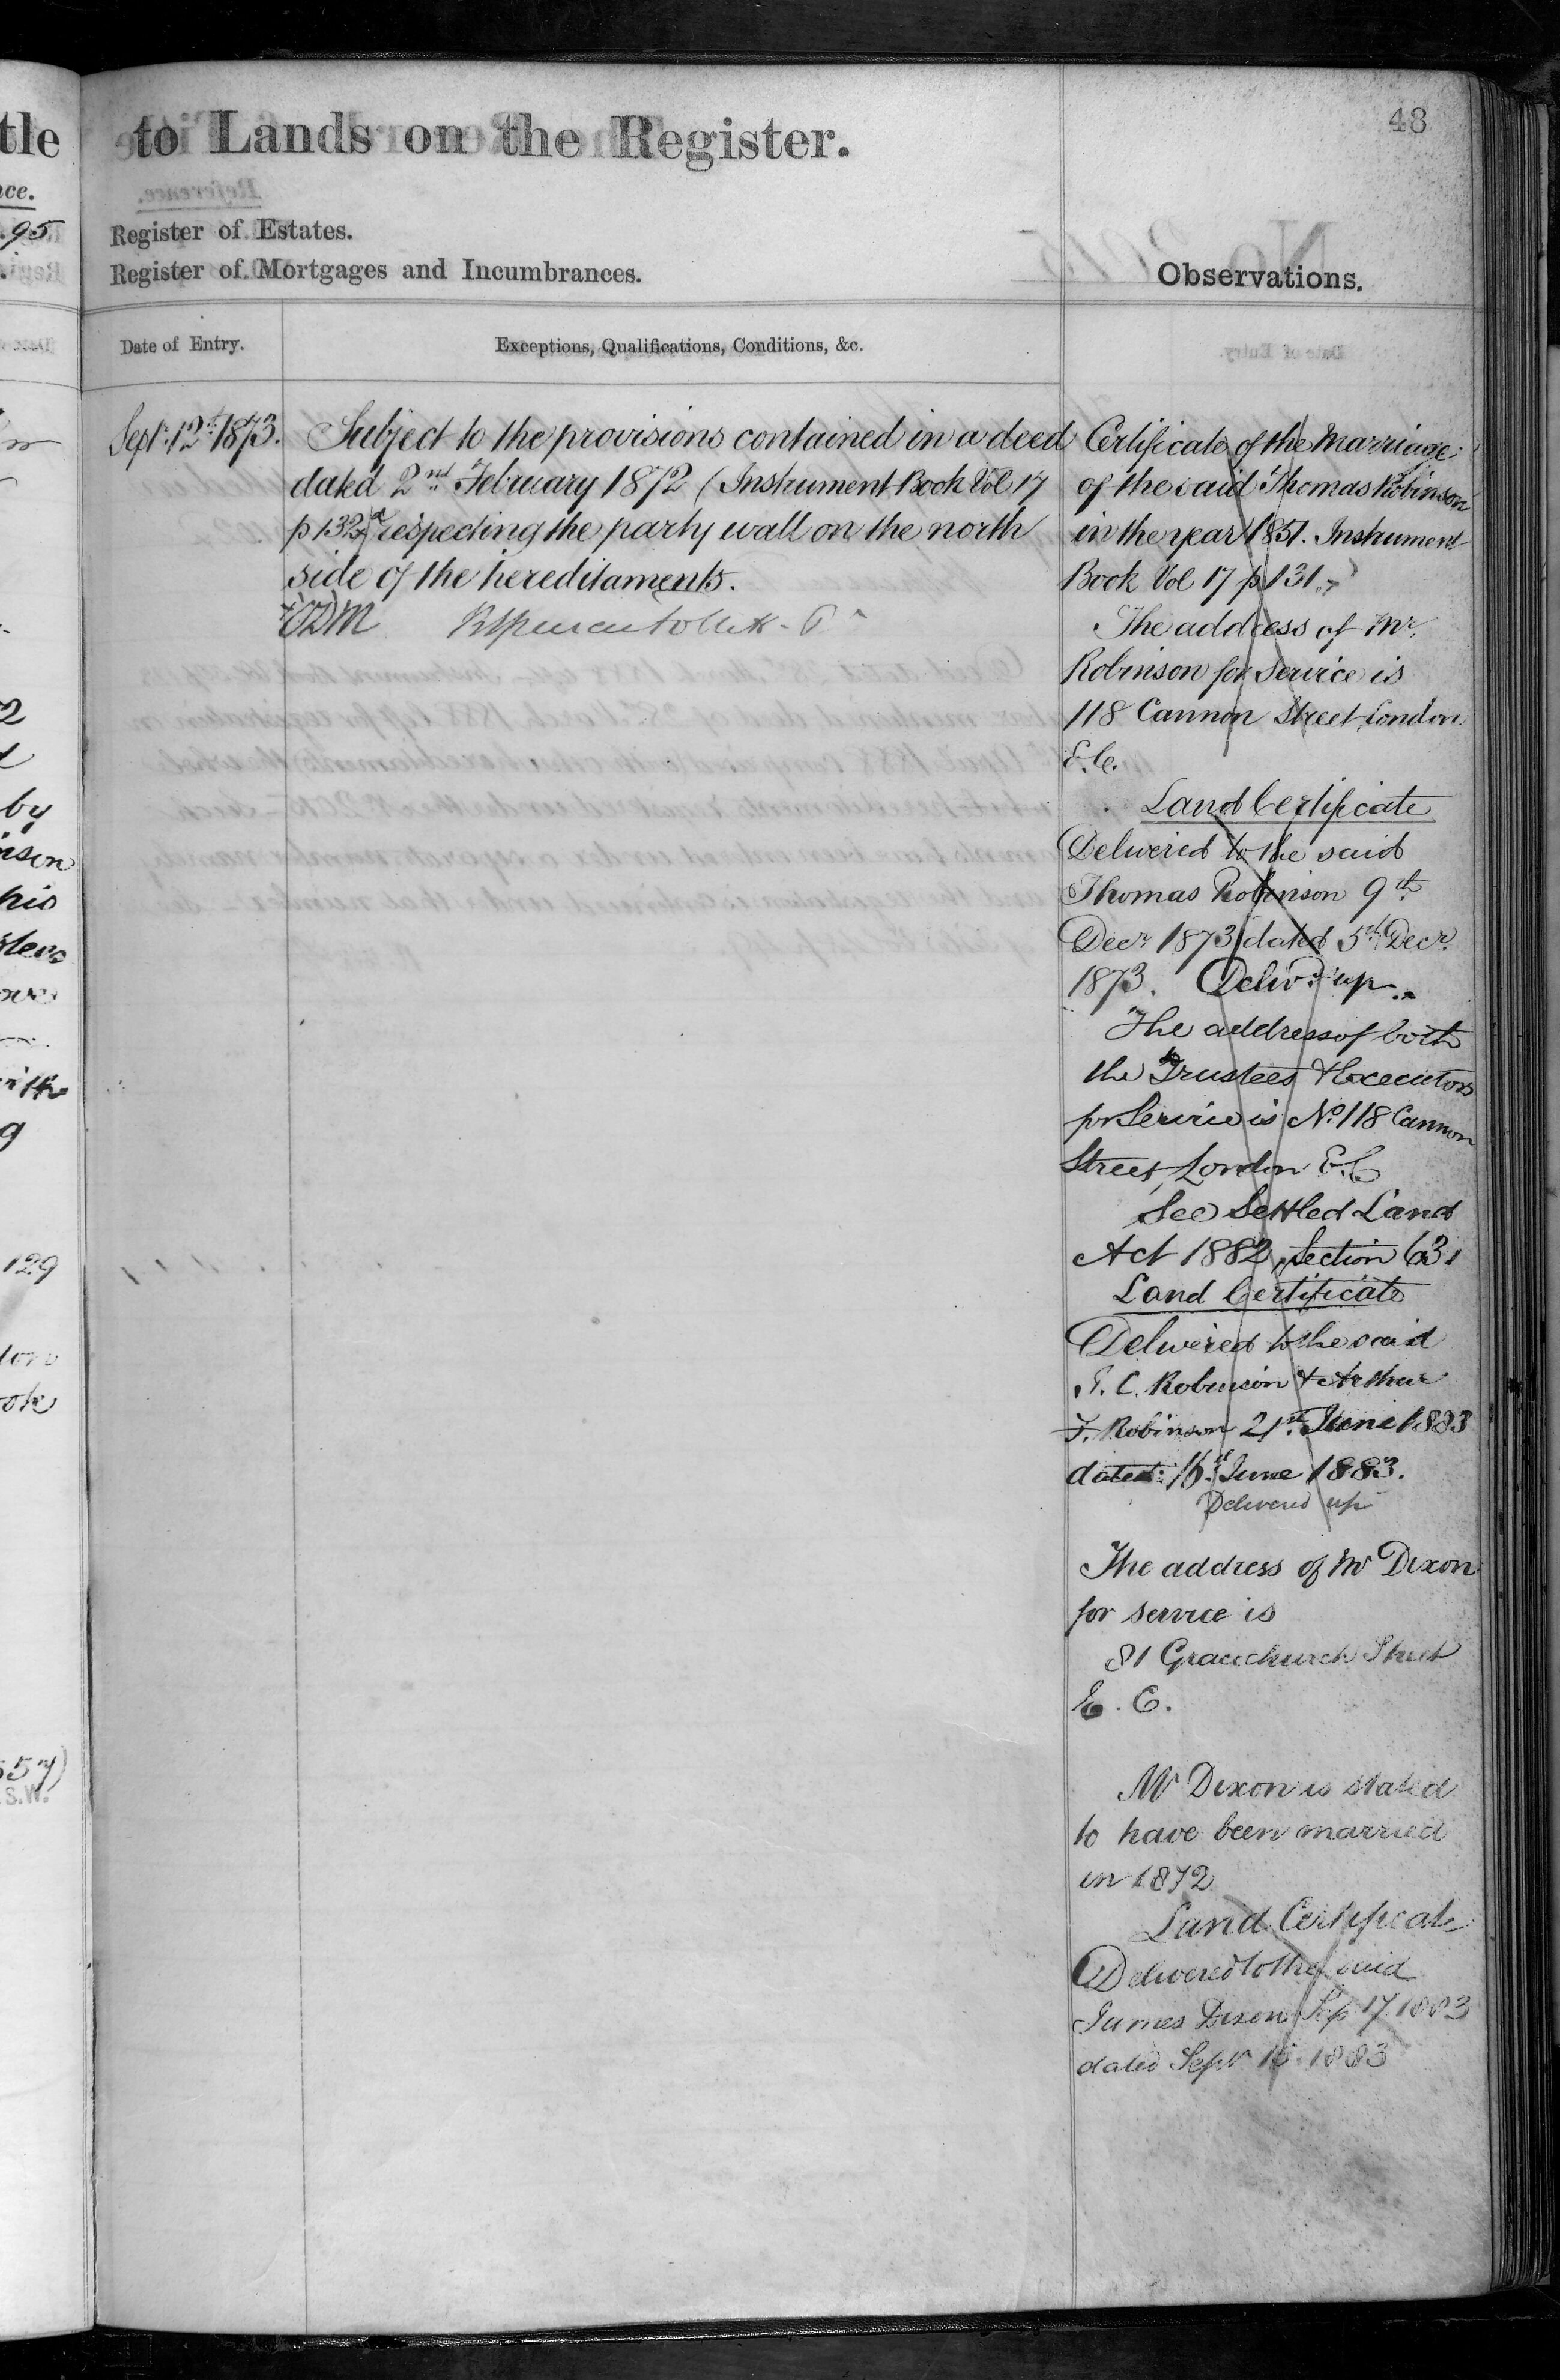 48
tle to Lands on the Register.
ce.
95
Register of Estates.
Register of Mortgages and Incumbrances.
Observations.
Date of Entry.
Exceptions, Qualifications, Conditions, &c.
Septr. 12th 1873.
Subject to the provisions contained in a deed
dated 2nd February 1872 (Instrument Book Vol 17
p 132) respecting the party wall on the north
side of the hereditaments.
Certificate of the Marriage
of the said Thomas Robinson
in the year 1851. Instrument
Book Vol 17 p 131.
The address of Mr.
Robinson for Service is
118 Cannon Street, London
E.C.
Land Certificate
Delivered to the said
Thomas Robinson 9th
Decr 1873 dated 5th Decr.
1873. Delivd. up.
The address of both
the Trustees & Executors
for Service is No. 118 Cannon
Street, London E.C
See Settled Land
Act 1882, Section 63.
Land Certificate
Delivered to the said
E. C. Robinson & Arthur
F. Robinson 21st June 1883
dated 16th June 1883.
Delivered up
The address of Mr Dixon
for service is
81 Gracechurch Street
E. C.
Mr Dixon is stated
to have been married
in 1872
Land Certificate
Delivered to the said
James Dixon Sep 17. 1883
dated Sept 15. 1883
2
by
his
9
129
557)
S.W.